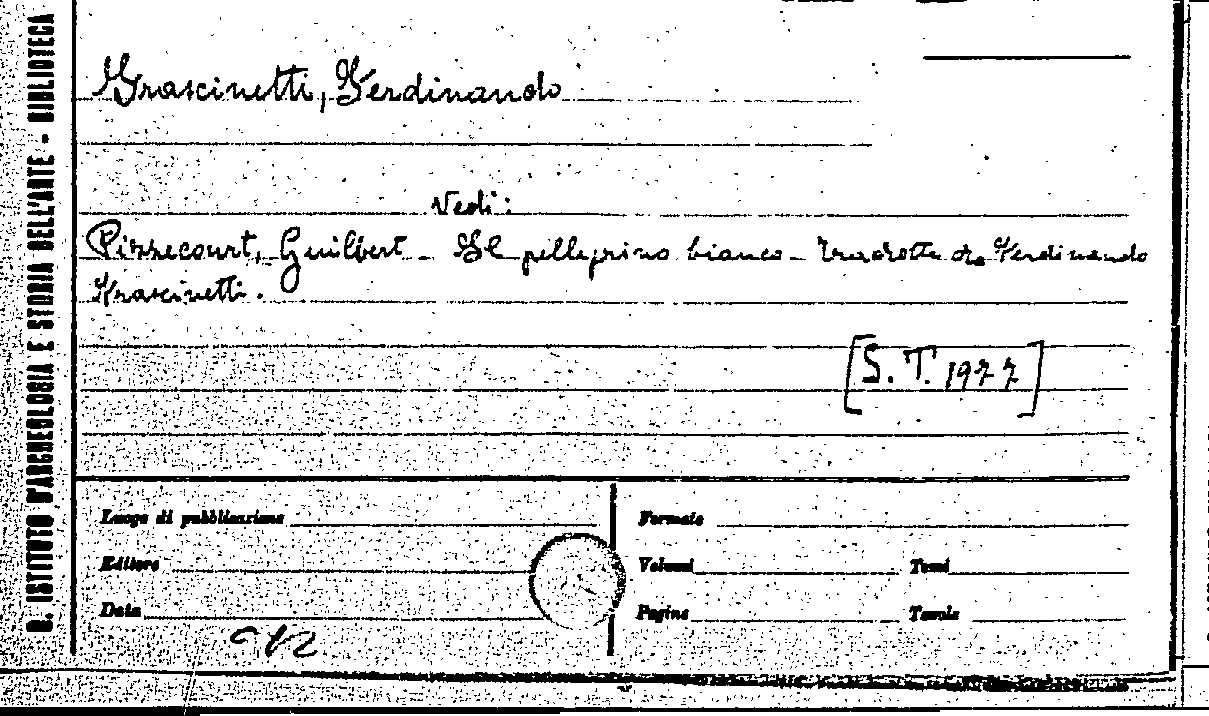 R. ISTITUTO D'ARCHEOLOGIA E STORIA DELL'ARTE - BIBLIOTECA
Grascinetti, Ferdinando
Vedi:
Pixrecourt, Guilbert - Il pellegrino bianco - Tradotto da Ferdinando
Grascinetti.
[S. T. 1977]
Luogo di pubblicazione
Formato
Editore
Volumi
Tomi
Data
Pagine
Tavole